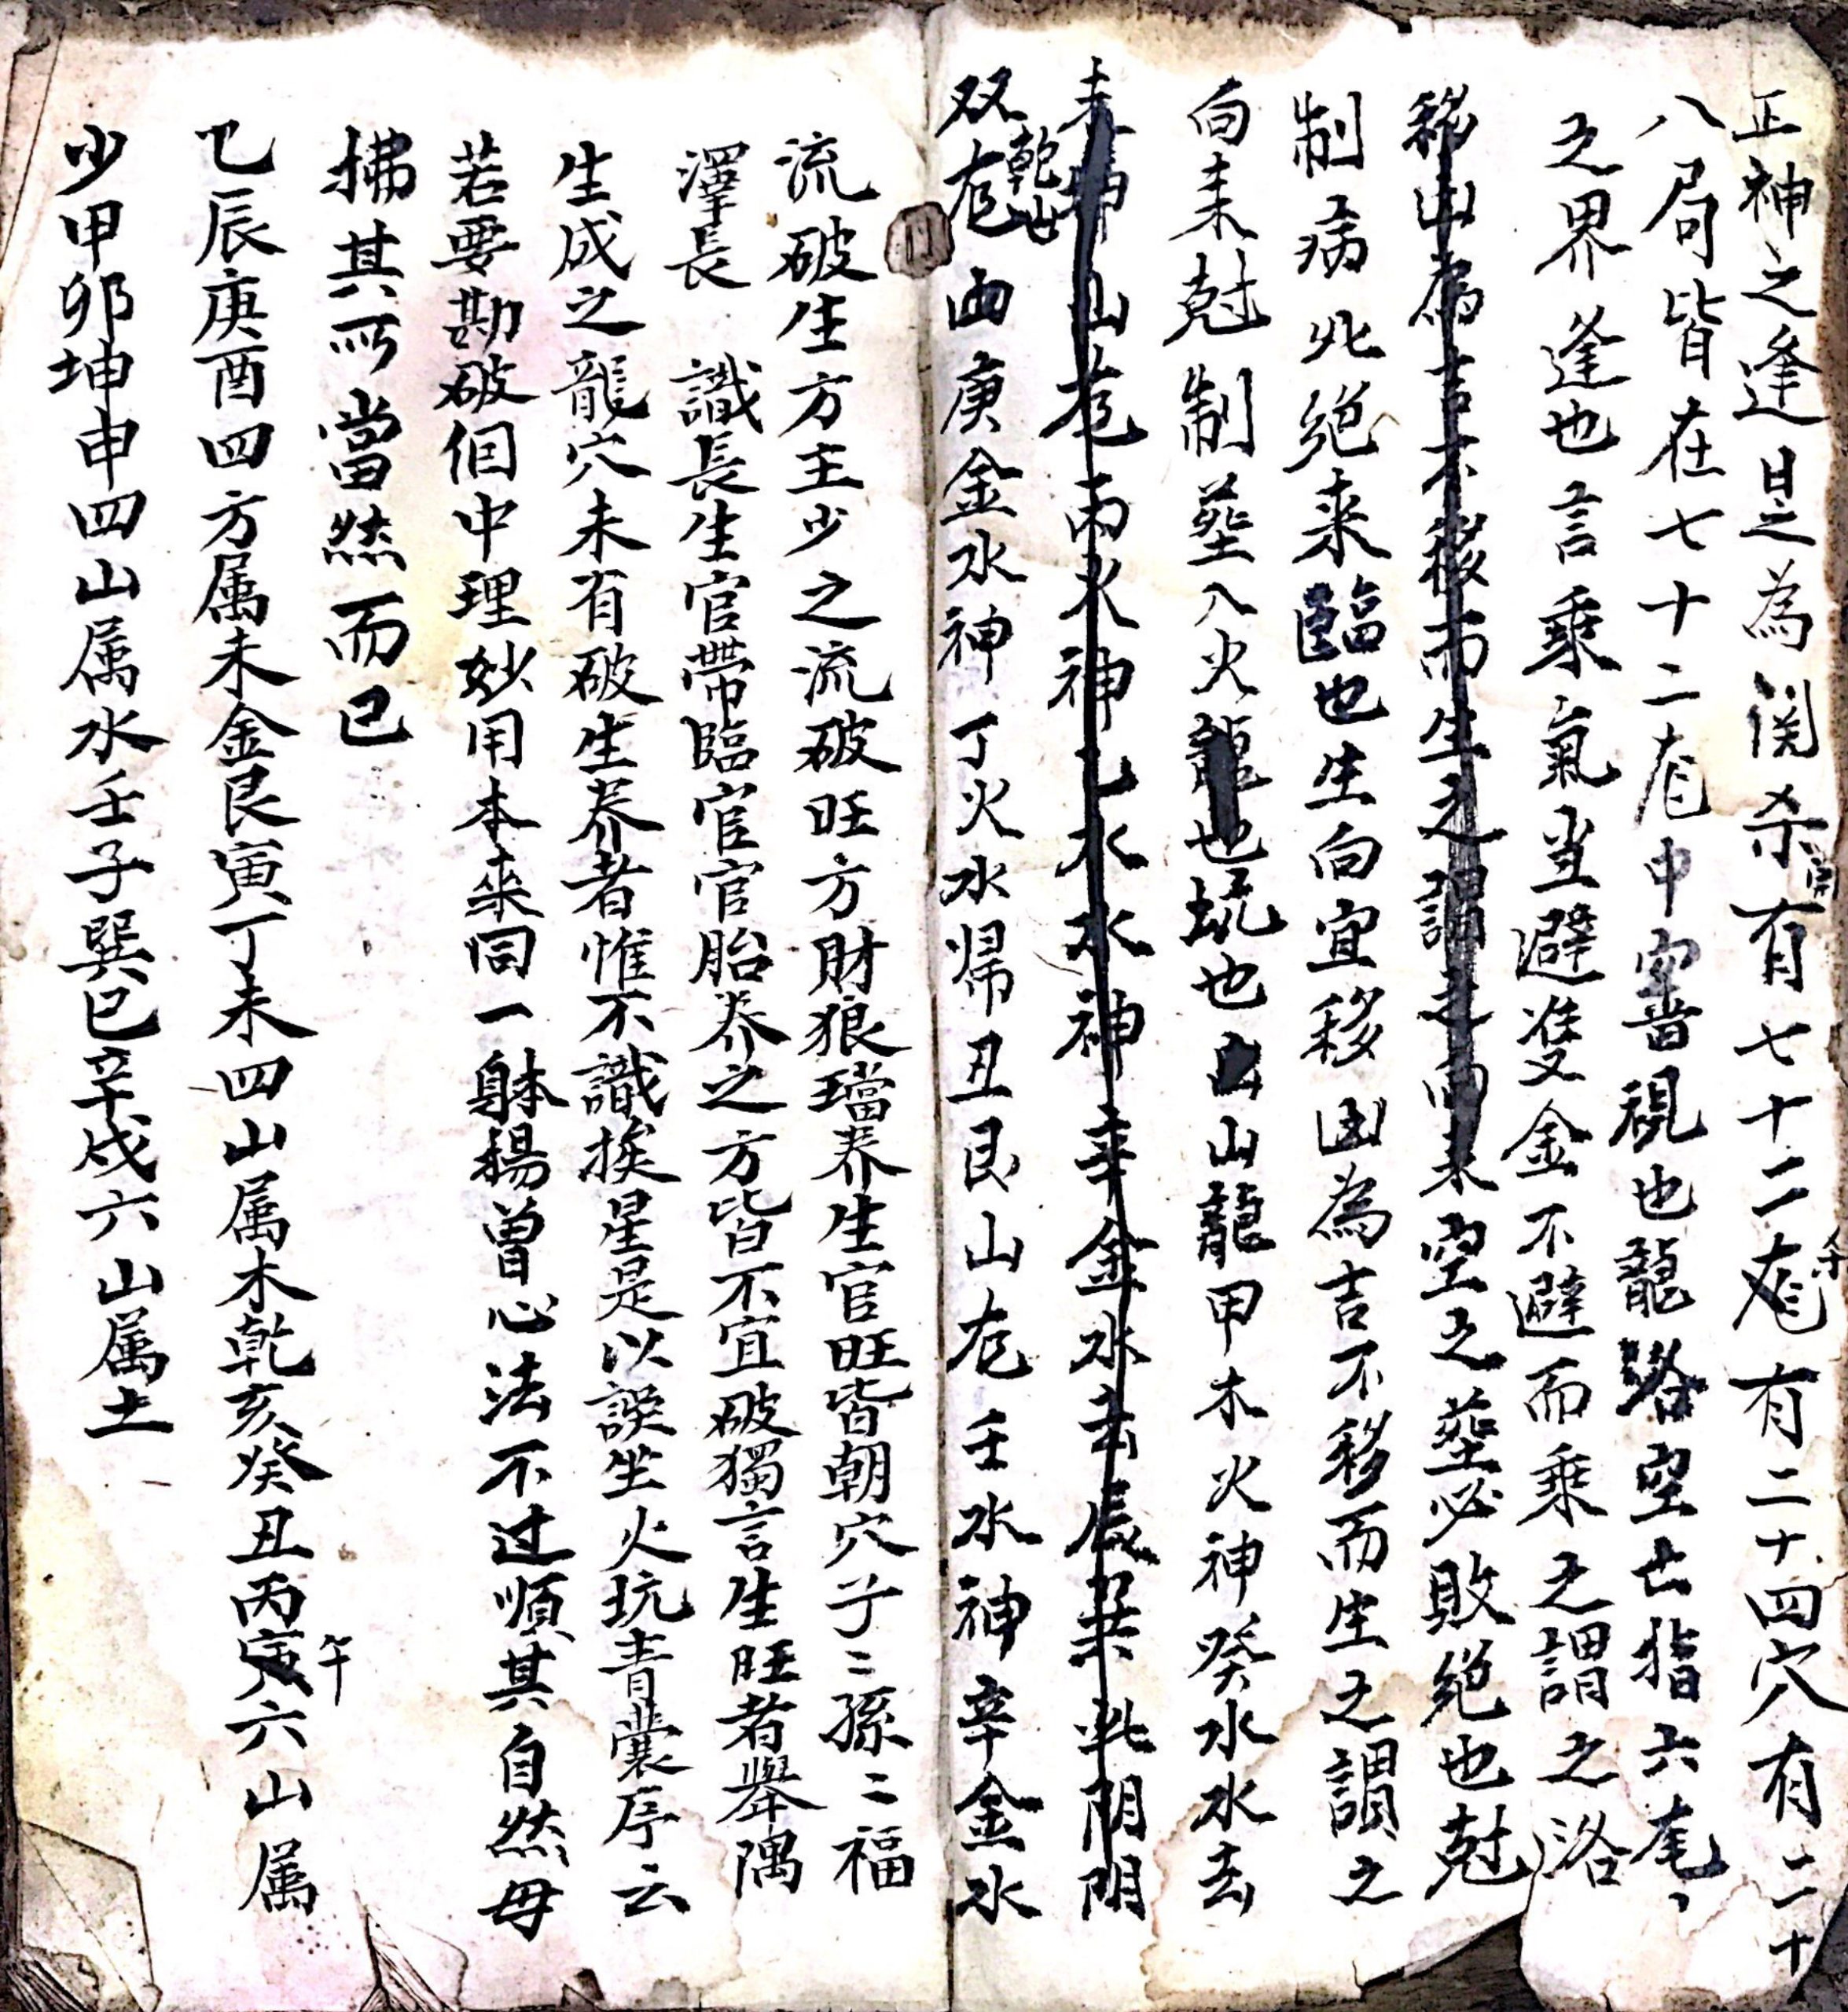 正神之逢是之為関杀有七十二龙有二十四穴有二十
八局皆在七十二龙中審視也龍洛空亡指六尾丶
之界逢也言乘氣当避凖金不避而乘之謂之洛
移凶為吉不移而生之謂之向来空之塟必敗絶也尅
制病此絶来臨也生向宜移凶為吉不移而生之謂之
向来尅制塟入火龍也坑也山山龍甲木火神癸水水去
未坤山龙丙火神乙水水神辛金水去辰巽此阴阴
双龙乾山西庚金水神丁火水帰丑艮山龙壬水神辛金水
流破生方主少之流破旺方財狼璫养生官旺皆朝穴子〻孫〻福
澤長 識長生官帶臨官官胎养之方皆不宜破獨言生旺者舉隅
生成之龍穴未有破生养者惟不識挨星是以誤坐火坑青囊序云
若要勘破個中理妙用本来同一躰楊曽心法不过順其自然毋
拂其所當然而已
乙辰庚酉四方属未金艮寅丁未四山属木乾亥癸丑丙午六山属
少甲卯坤申四山属水壬子巽巳辛戍六山属土